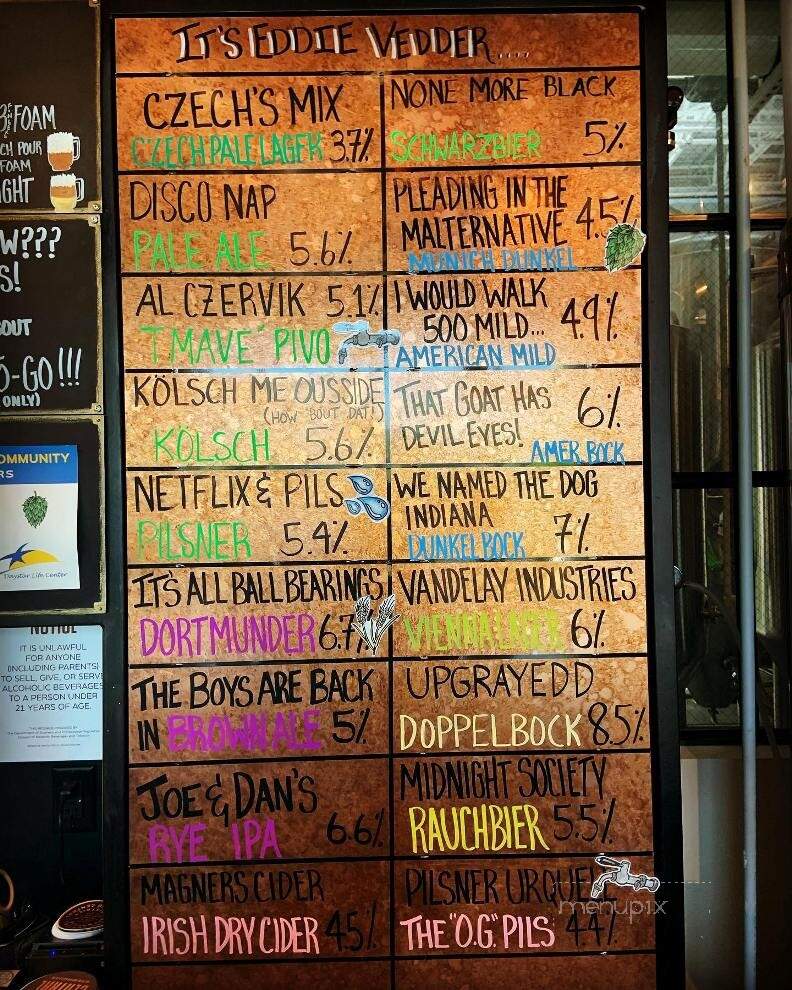 IT'S EDDIE VEDDER....
CZECH'S MIX
CZECH PALE LAGER 3.7%
DISCO NAP
PALE ALE 5.6%
AL CZERVIK 5.1%
"TMAVE" PIVO
KÖLSCH ME OUSSIDE
(HOW 'BOUT DAT!)
KÖLSCH 5.6%
NETFLIX & PILS
PILSNER 5.4%
IT'S ALL BALL BEARINGS
DORTMUNDER 6.7%
THE BOYS ARE BACK
IN BROWN ALE 5%
JOE & DAN'S
RYE IPA 6.6%
MAGNERS CIDER
IRISH DRY CIDER 4.5%
NONE MORE BLACK
SCHWARZBIER 5%
PLEADING IN THE
MALTERNATIVE 4.5%
MUNICH DUNKEL
I WOULD WALK
500 MILD... 4.9%
AMERICAN MILD
THAT GOAT HAS
DEVIL EYES! 6%
AMER. BOCK
WE NAMED THE DOG
INDIANA
DUNKELBOCK 7%
VANDELAY INDUSTRIES
VIENNA LAGER 6%
UPGRAYEDD
DOPPELBOCK 8.5%
MIDNIGHT SOCIETY
RAUCHBIER 5.5%
PILSNER URQUEL
THE "O.G." PILS 4.4%
FOAM
CH POUR
FOAM
GHT
W???
S!
OUT
O-GO!!!
ONLY)
OMMUNITY
RS
Daystar Life Center
NOTICE
IT IS UNLAWFUL
FOR ANYONE
(INCLUDING PARENTS)
TO SELL, GIVE, OR SERVE
ALCOHOLIC BEVERAGES
TO A PERSON UNDER
21 YEARS OF AGE.
menupix